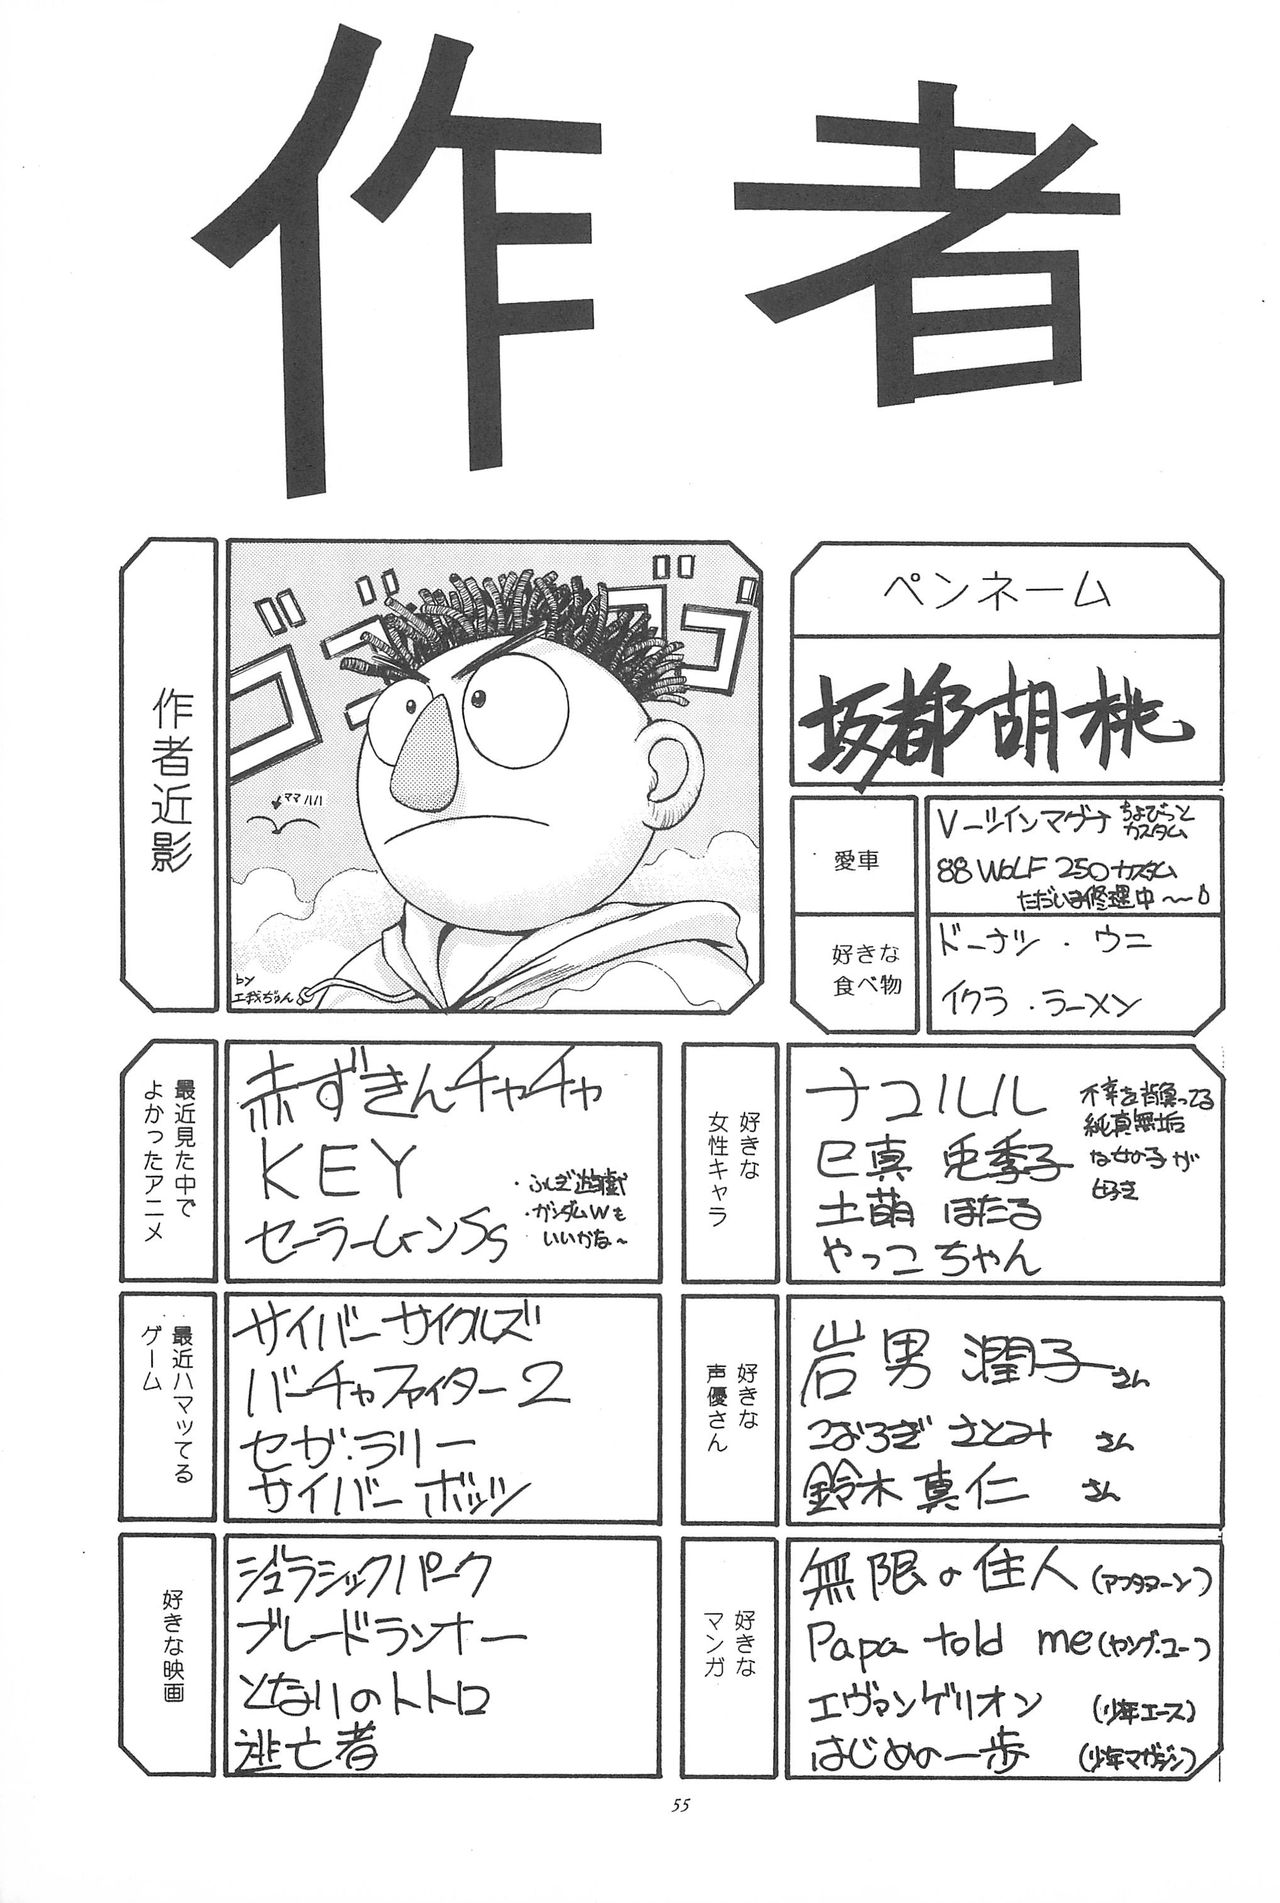 作者
作者近影
ゴゴゴゴ
ママハハ
by
エ我ぢゅん
ペンネーム
坂都胡桃
愛車
Vーツインマグナ ちょびっと
カスタム
88 WOLF 250カスタム
ただいま修理中〜
好きな
食べ物
ドーナツ・ウニ
イクラ・ラーメン
最近見た中で
よかったアニメ
赤ずきんチャチャ
KEY
セーラームーンSs
・ふしぎ遊戯
・ガンダムWも
いいかな〜
好きな
女性キャラ
ナコルル
巳真 兎季子
土萌 ほたる
やっこちゃん
不幸を背負ってる
純真無垢
な女の子が
好き
最近ハマッてる
ゲーム
サイバーサイクルズ
バーチャファイター2
セガ・ラリー
サイバーボッツ
好きな
声優さん
岩男 潤子さん
こおろぎ さとみ さん
鈴木 真仁 さん
好きな映画
ジュラシックパーク
ブレードランナー
となりのトトロ
逃亡者
好きな
マンガ
無限の住人(アフタヌーン)
Papa told me(ヤング・ユー)
エヴァンゲリオン (少年エース)
はじめの一歩 (少年マガジン)
55